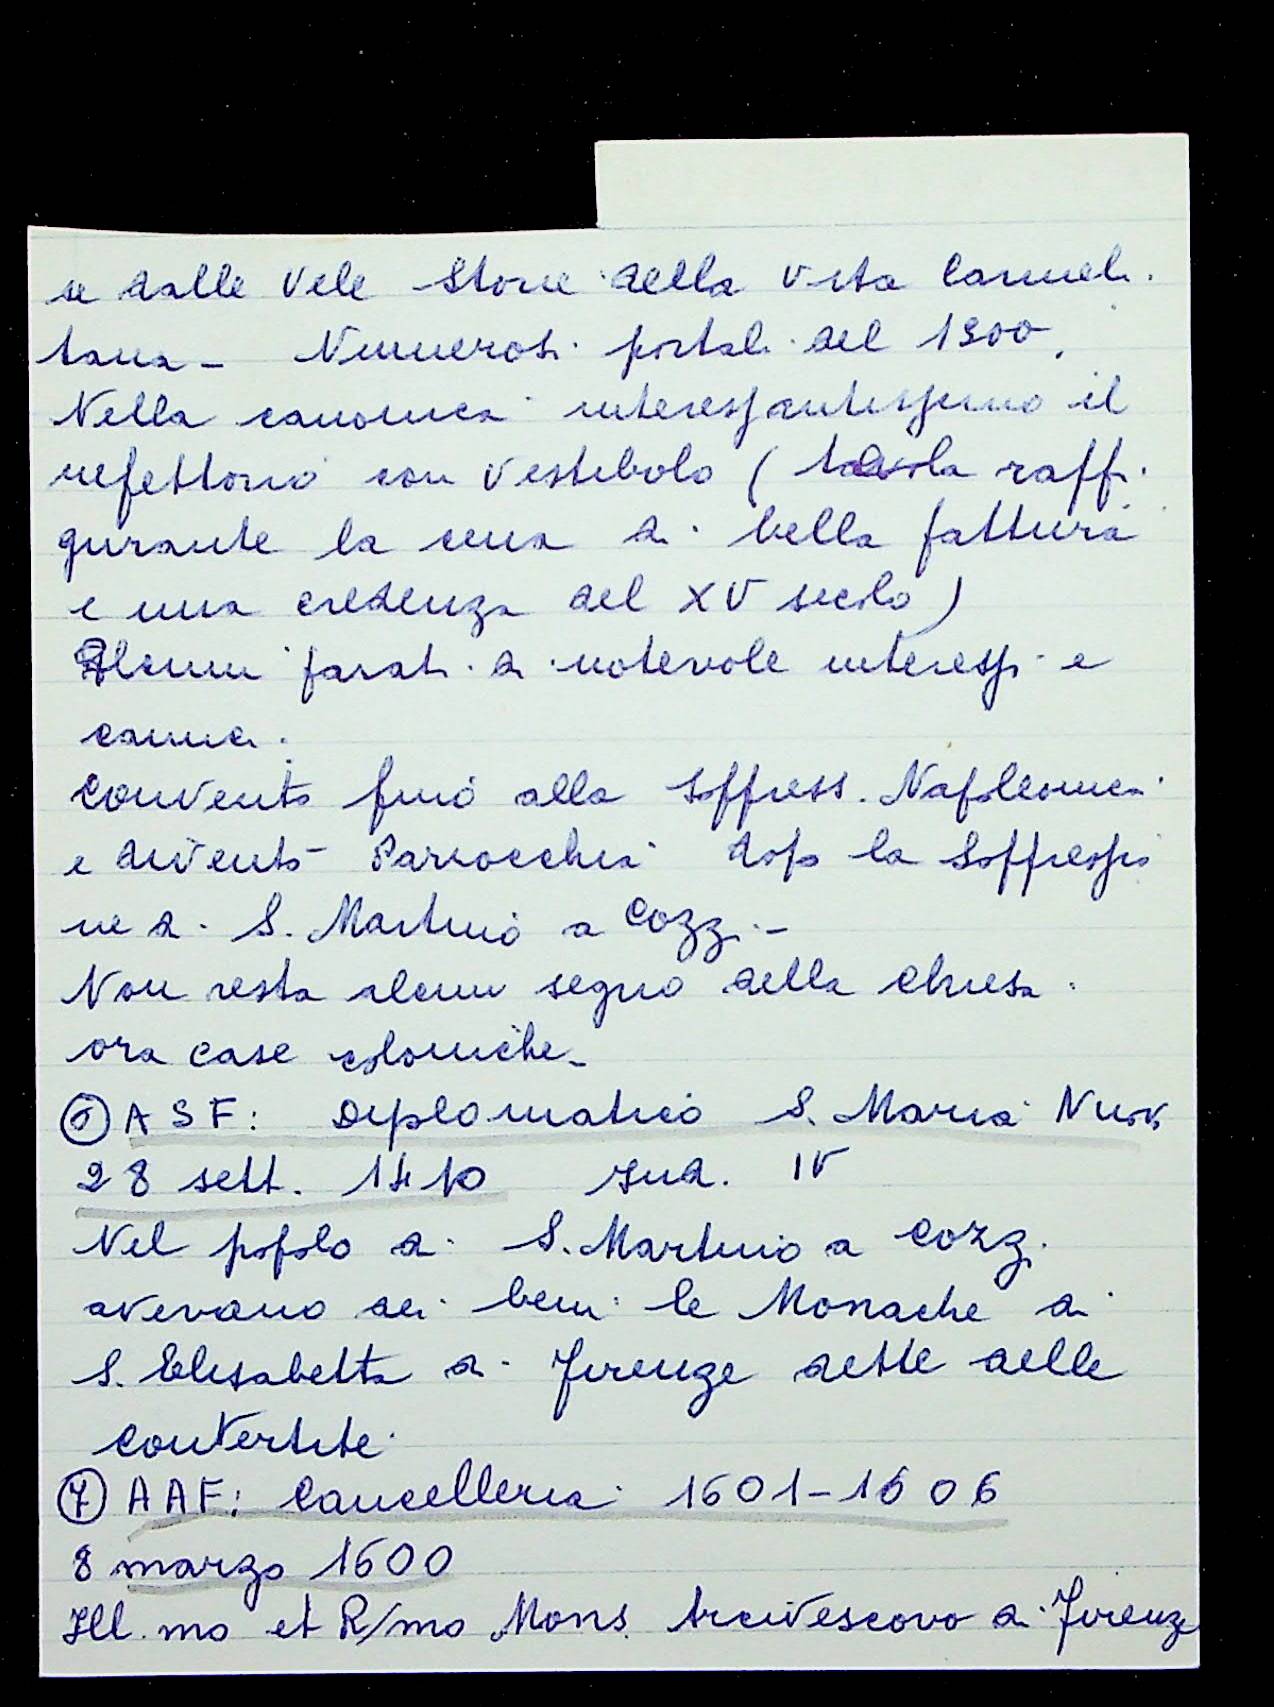 se dalle vele storie della vita Carmeli-
tana - Numerosi portali del 1300.
Nella canonica interessantissimo il
refettorio con vestibolo (tavola raffi-
gurante la cena di bella fattura
e una credenza del XV secolo)
Alcuni parati di notevole interesse e
camici.
Convento fino alla soppress. Napoleonica
e diventò Parrocchia dopo la soppressio
ne di S. Martino a Cozzi -
Non resta alcun segno della chiesa.
ora case coloniche -
⑥ ASF: Diplomatico S. Maria Nuov.
28 sett. 1410 Ind. IV
Nel popolo di S. Martino a Cozzi
avevano dei beni le Monache di
S. Elisabetta di Firenze dette delle
convertite.
⑦ AAF: Cancelleria 1601-1606
8 marzo 1600
Ill.mo et R/mo Mons. Arcivescovo di Firenze